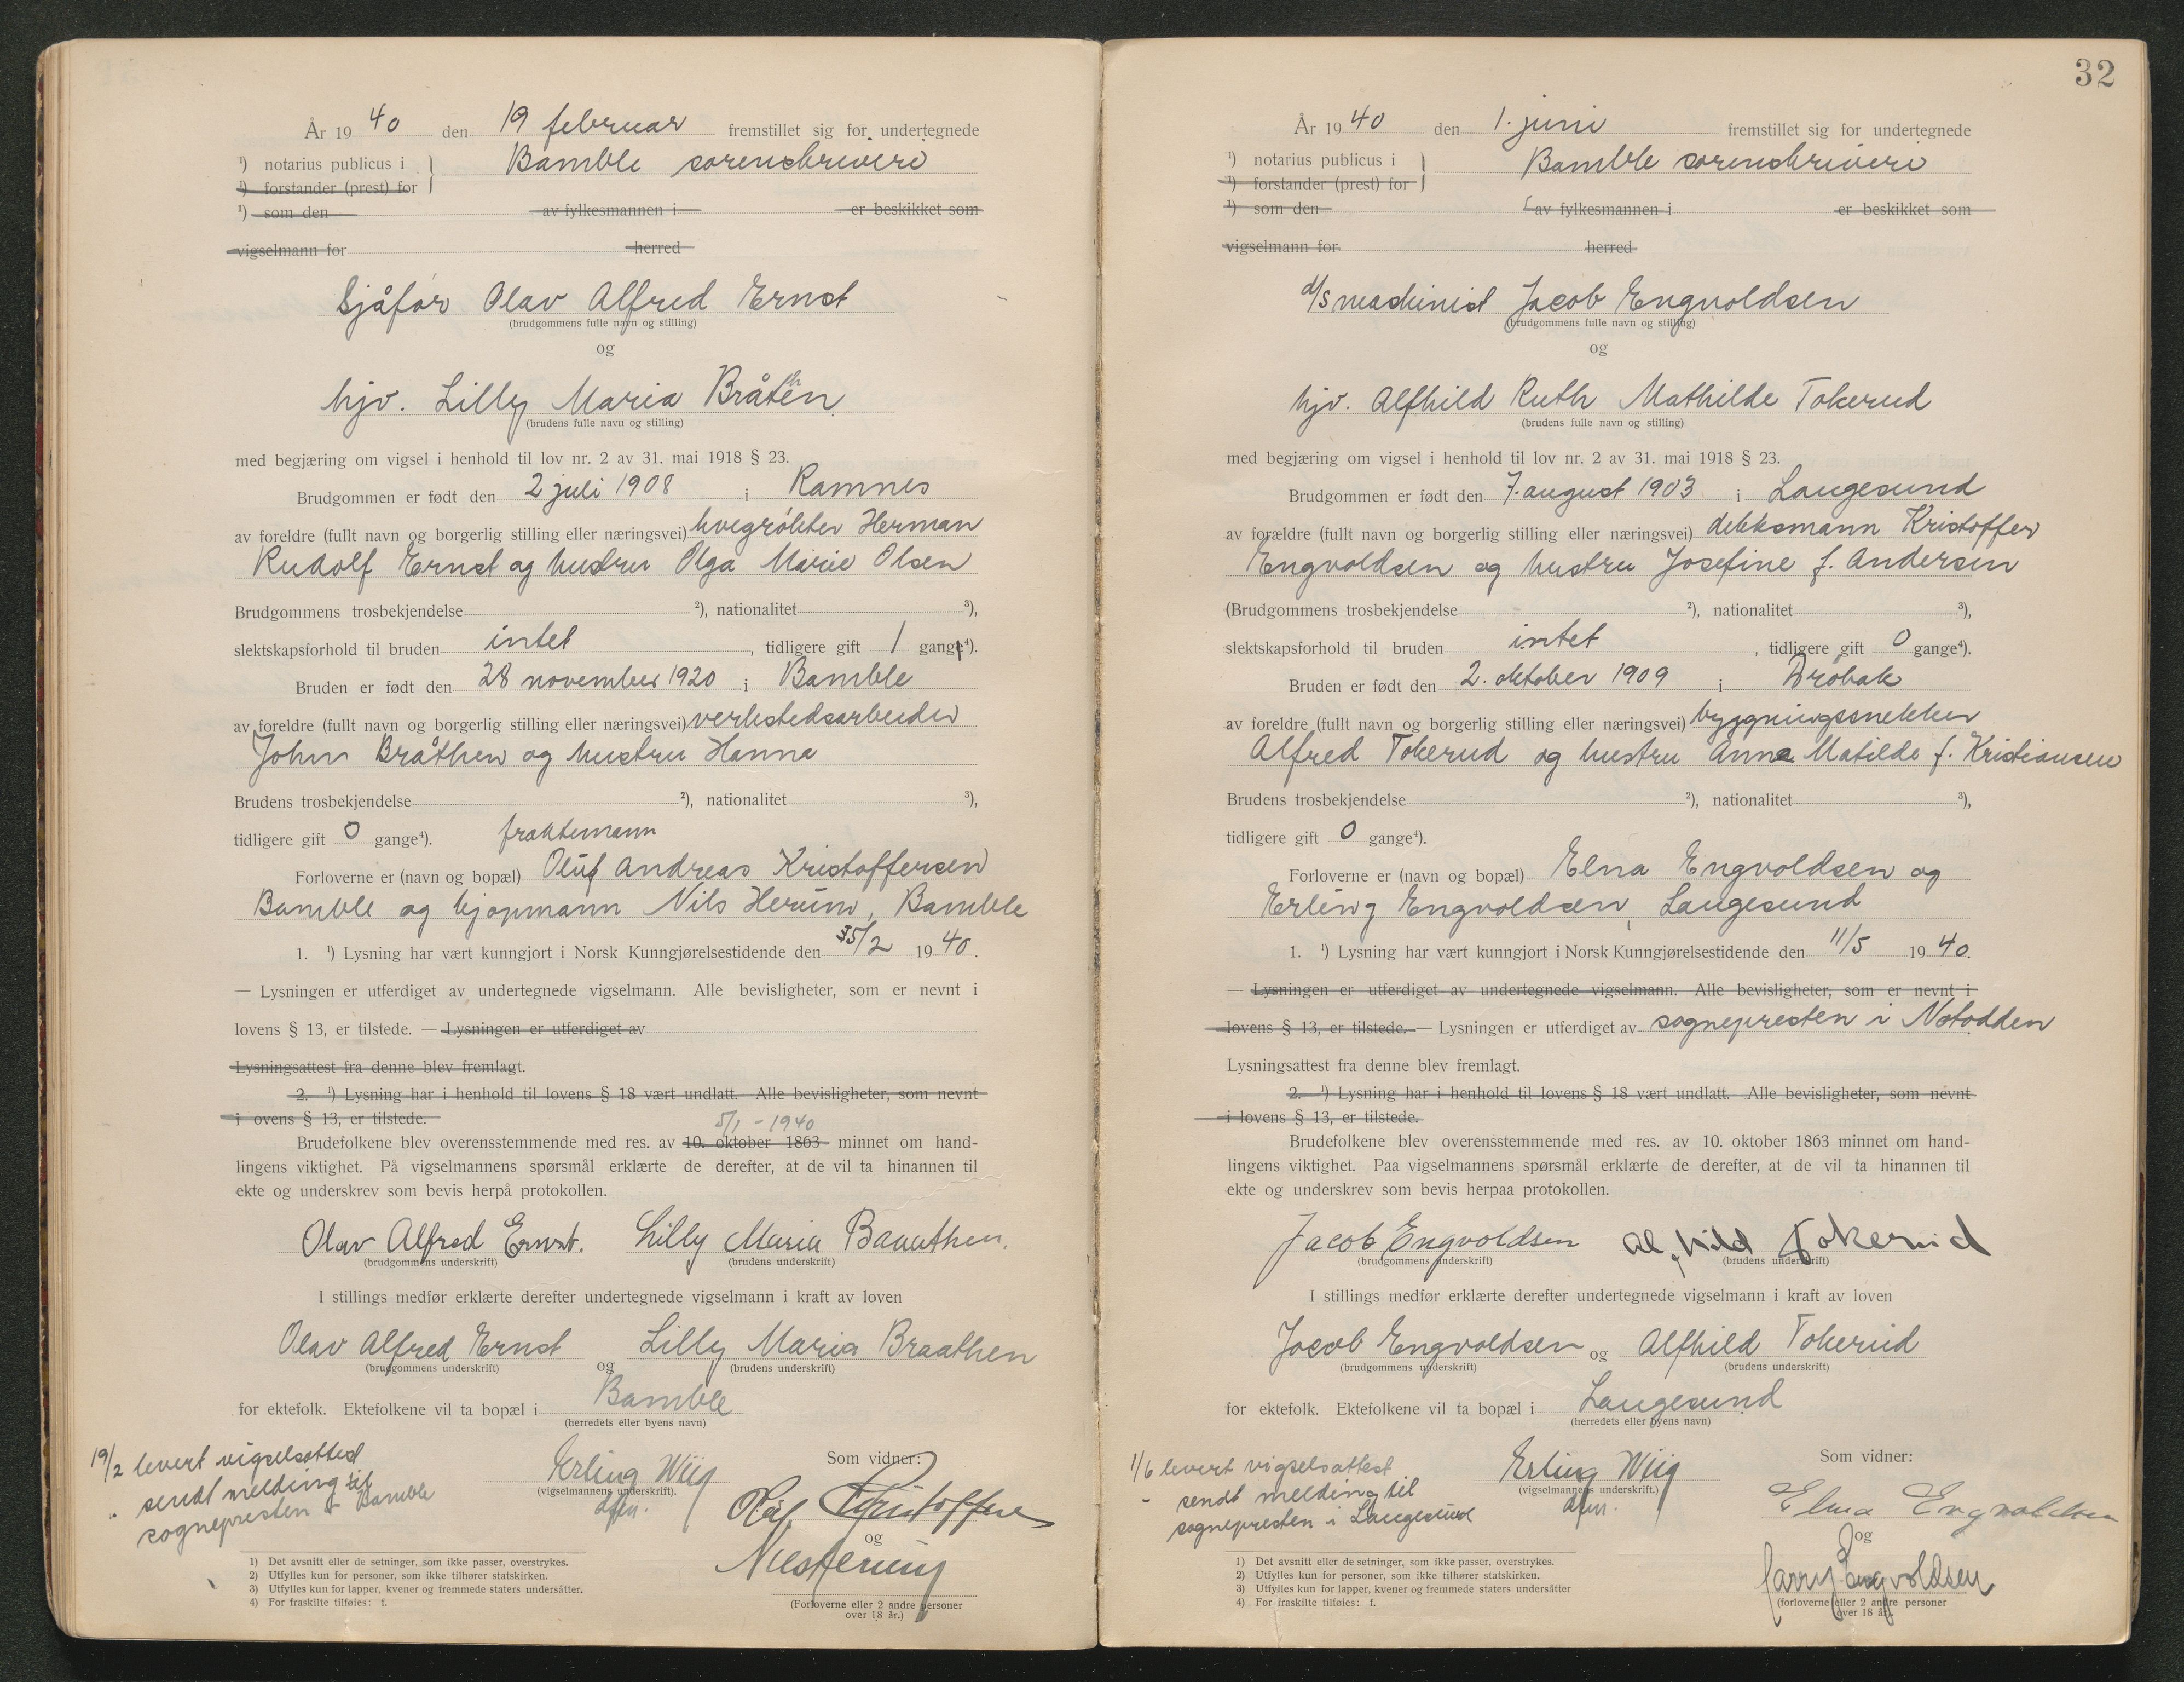 År 19 40 den 19 februar fremstillet sig for undertegnede
¹) notarius publicus i } Bamble sorenskriveri
¹) forstander (prest) for
¹) som den av fylkesmannen i er beskikket som
vigselmann for herred
Sjåfør Olav Alfred Ernst
(brudgommens fulle navn og stilling)
og
hjv. Lilly Maria Bråthen
(brudens fulle navn og stilling)
med begjæring om vigsel i henhold til lov nr. 2 av 31. mai 1918 § 23.
Brudgommen er født den 2 juli 1908 i Ramnes
av foreldre (fullt navn og borgerlig stilling eller næringsvei) kvegrøkter Herman
Rudolf Ernst og hustru Olga Marie Olsen
Brudgommens trosbekjendelse ²), nationalitet ³),
slektskapsforhold til bruden intet , tidligere gift 1 gang⁴).
Bruden er født den 28 november 1920 i Bamble
av foreldre (fullt navn og borgerlig stilling eller næringsvei) verkstedsarbeider
John Bråthen og hustru Hanna
Brudens trosbekjendelse ²), nationalitet ³),
tidligere gift 0 gange⁴). fraktemann
Forloverne er (navn og bopæl) Oluf Andreas Kristoffersen
Bamble og kjøpmann Nils Herum, Bamble
1. ¹) Lysning har vært kunngjort i Norsk Kunngjørelsestidende den 5/2 1940.
— Lysningen er utferdiget av undertegnede vigselmann. Alle bevisligheter, som er nevnt i
lovens § 13, er tilstede. — Lysningen er utferdiget av
Lysningsattest fra denne blev fremlagt.
2. ¹) Lysning har i henhold til lovens § 18 vært undlatt. Alle bevisligheter, som nevnt
i ovens § 13, er tilstede.
5/1 - 1940
Brudefolkene blev overensstemmende med res. av 10. oktober 1863 minnet om hand-
lingens viktighet. På vigselmannens spørsmål erklærte de derefter, at de vil ta hinannen til
ekte og underskrev som bevis herpå protokollen.
Olav Alfred Ernst. Lilly Maria Braathen.
(brudgommens underskrift) (brudens underskrift)
I stillings medfør erklærte derefter undertegnede vigselmann i kraft av loven
Olav Alfred Ernst og Lilly Maria Braathen
(brudgommens underskrift) (brudens underskrift)
for ektefolk. Ektefolkene vil ta bopæl i Bamble
(herredets eller byens navn)
19/2 levert vigselsattest
" sendt melding til
sognepresten i Bamble
Erling Wiig
(vigselmannens underskrift).
dfm.
Som vidner:
Olaf Kristoffersen
og
Nils Herum
(Forloverne eller 2 andre personer
over 18 år.)
1) Det avsnitt eller de setninger, som ikke passer, overstrykes.
2) Utfylles kun for personer, som ikke tilhører statskirken.
3) Utfylles kun for lapper, kvener og fremmede staters undersåtter.
4) For fraskilte tilføies: f.
32
År 19 40 den 1. juni fremstillet sig for undertegnede
¹) notarius publicus i } Bamble sorenskriveri
¹) forstander (prest) for
¹) som den av fylkesmannen i er beskikket som
vigselmann for herred
d/s maskinist Jacob Engvoldsen
(brudgommens fulle navn og stilling)
og
hjv. Alfhild Ruth Mathilde Tokerud
(brudens fulle navn og stilling)
med begjæring om vigsel i henhold til lov nr. 2 av 31. mai 1918 § 23.
Brudgommen er født den 7. august 1903 i Langesund
av forældre (fullt navn og borgerlig stilling eller næringsvei) dekksmann Kristoffer
Engvoldsen og hustru Josefine f. Andersen
(Brudgommens trosbekjendelse ²), nationalitet ³),
slektskapsforhold til bruden intet , tidligere gift 0 gange⁴).
Bruden er født den 2. oktober 1909 i Drøbak
av foreldre (fullt navn og borgerlig stilling eller næringsvei) bygningssnekker
Alfred Tokerud og hustru Anna Matilde f. Kristiansen
Brudens trosbekjendelse ²), nationalitet ³),
tidligere gift 0 gange⁴).
Forloverne er (navn og bopæl) Elna Engvoldsen og
Erling Engvoldsen, Langesund
1. ¹) Lysning har vært kunngjort i Norsk Kunngjørelsestidende den 11/5 1940.
— Lysningen er utferdiget av undertegnede vigselmann. Alle bevisligheter, som er nevnt i
lovens § 13, er tilstede. — Lysningen er utferdiget av sognepresten i Notodden
Lysningsattest fra denne blev fremlagt.
2. ¹) Lysning har i henhold til lovens § 18 vært undlatt. Alle bevisligheter, som nevnt
i lovens § 13, er tilstede.
Brudefolkene blev overensstemmende med res. av 10. oktober 1863 minnet om hand-
lingens viktighet. Paa vigselmannens spørsmål erklærte de derefter, at de vil ta hinannen til
ekte og underskrev som bevis herpaa protokollen.
Jacob Engvoldsen Alfhild Tokerud
(brudgommens underskrift) (brudens underskrift)
I stillings medfør erklærte derefter undertegnede vigselmann i kraft av loven
Jacob Engvoldsen og Alfhild Tokerud
(brudgommens underskrift) (brudens underskrift)
for ektefolk. Ektefolkene vil ta bopæl i Langesund
(herredets eller byens navn)
1/6 levert vigselsattest
- sendt melding til
sognepresten i Langesund
Erling Wiig
(vigselmannens underskrift.)
dfm.
Som vidner:
Elna Engvoldsen
og
Harry Engvoldsen
(forloverne eller 2 andre personer
over 18 år).
1) Det avsnitt eller de setninger, som ikke passer, overstrykes.
2) Utfylles kun for personer, som ikke tilhører statskirken.
3) Utfylles kun for lapper, kvener og fremmede staters undersåtter
4) For fraskilte tilføies: f.